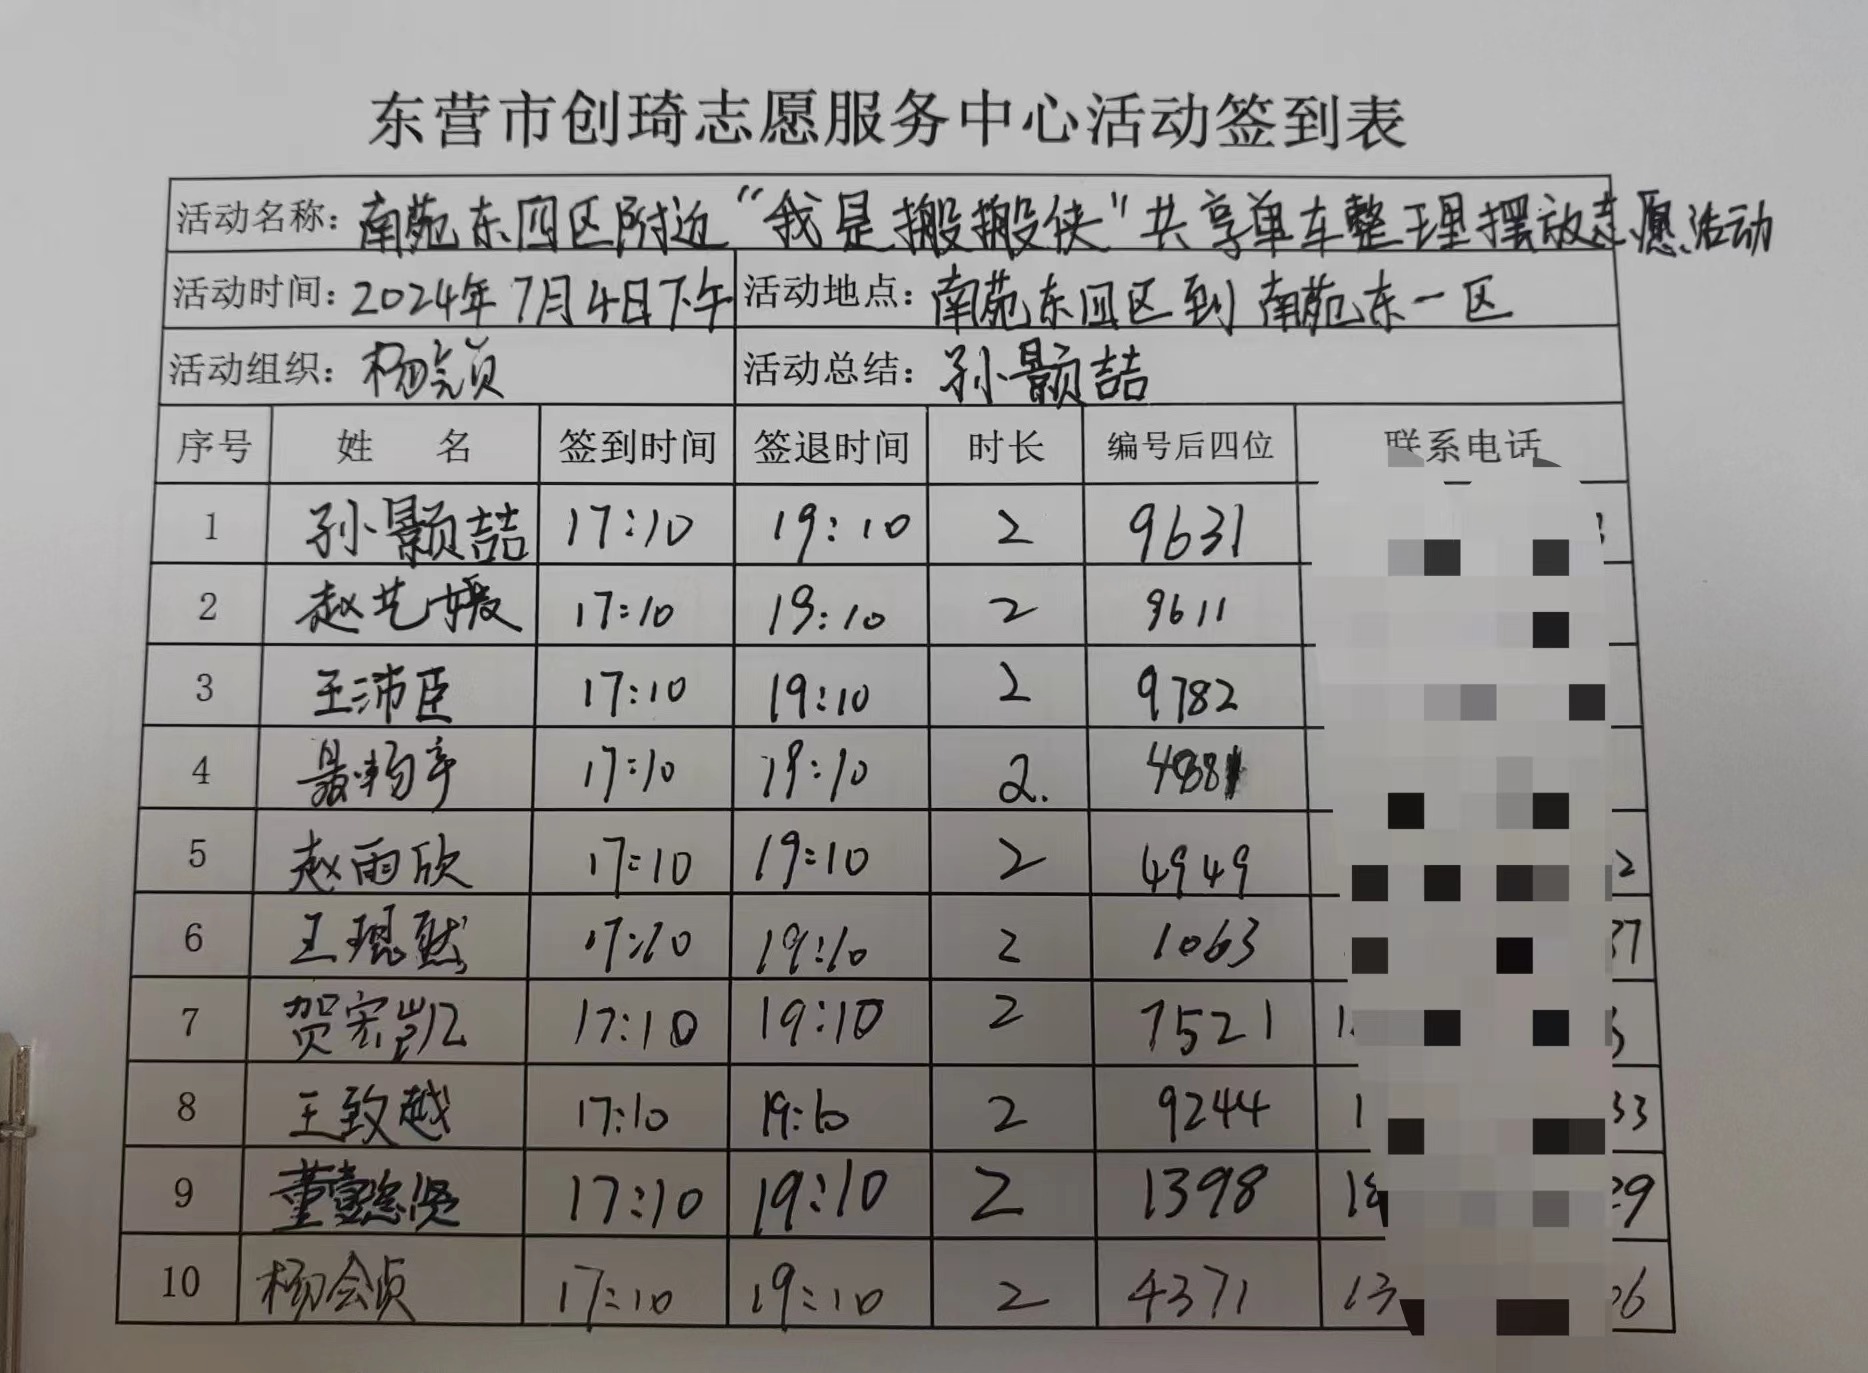 东营市创琦志愿服务中心活动签到表
活动名称：南苑东四区附近“我是搬搬侠”共享单车整理摆放志愿活动
活动时间：2024年7月4日下午 活动地点：南苑东四区到南苑东一区
活动组织：杨会贞 活动总结：孙颢喆
序号 姓 名 签到时间 签退时间 时长 编号后四位 联系电话
1 孙颢喆 17:10 19:10 2 9631
2 赵艺媛 17:10 19:10 2 9611
3 王沛臣 17:10 19:10 2 9782
4 17:10 19:10 2.
5 赵雨欣 17:10 19:10 2 4949
6 王琨然 17:10 19:10 2 1063 37
7 贺宏凯 17:10 19:10 2 7521
8 王致越 17:10 19:10 2 9244 1 33
9 17:10 19:10 2 1398 29
10 杨会贞 17:10 19:10 2 4371 13 06